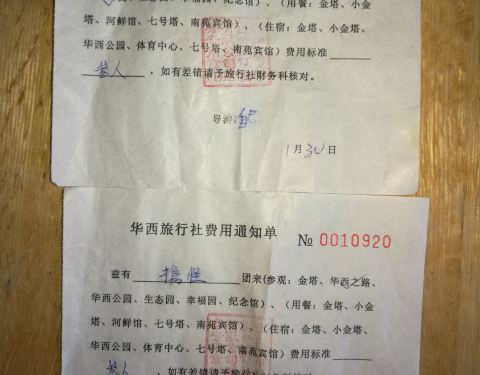 塔、河鲜馆、七号塔、南苑宾馆）、（住宿：金塔、小金
华西公园、体育中心、七号塔、南苑宾馆）费用标准
叁人，如有差错请予旅行社财务科核对。
导游：
1月30日
华西旅行社费用通知单
№ 0010920
兹有 团来(参观：金塔、华西之路、
华西公园、生态园、幸福园、纪念馆）、（用餐：金塔、小金
塔、河鲜馆、七号塔、南苑宾馆）、（住宿：金塔、小金塔、
华西公园、体育中心、七号塔、南苑宾馆）费用标准
叁人，如有差错请予旅行社财务科核对。